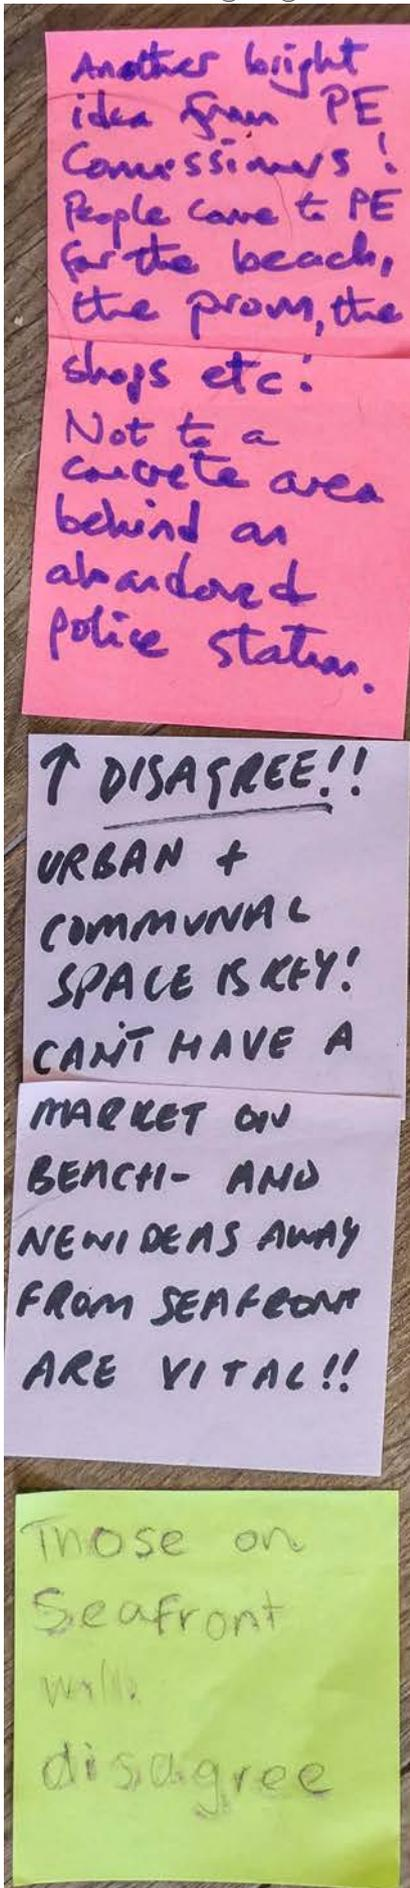 Another bright
idea from PE
Comissioners!
People come to PE
for the beach,
the prom, the
shops etc!
Not to a
concrete area
behind an
abandoned
police station.
↑ DISAGREE!!
URBAN +
COMMUNAL
SPACE IS KEY!
CAN'T HAVE A
MARKET ON
BEACH- AND
NEW IDEAS AWAY
FROM SEAFRONT
ARE VITAL!!
Those on
Seafront
will
disagree